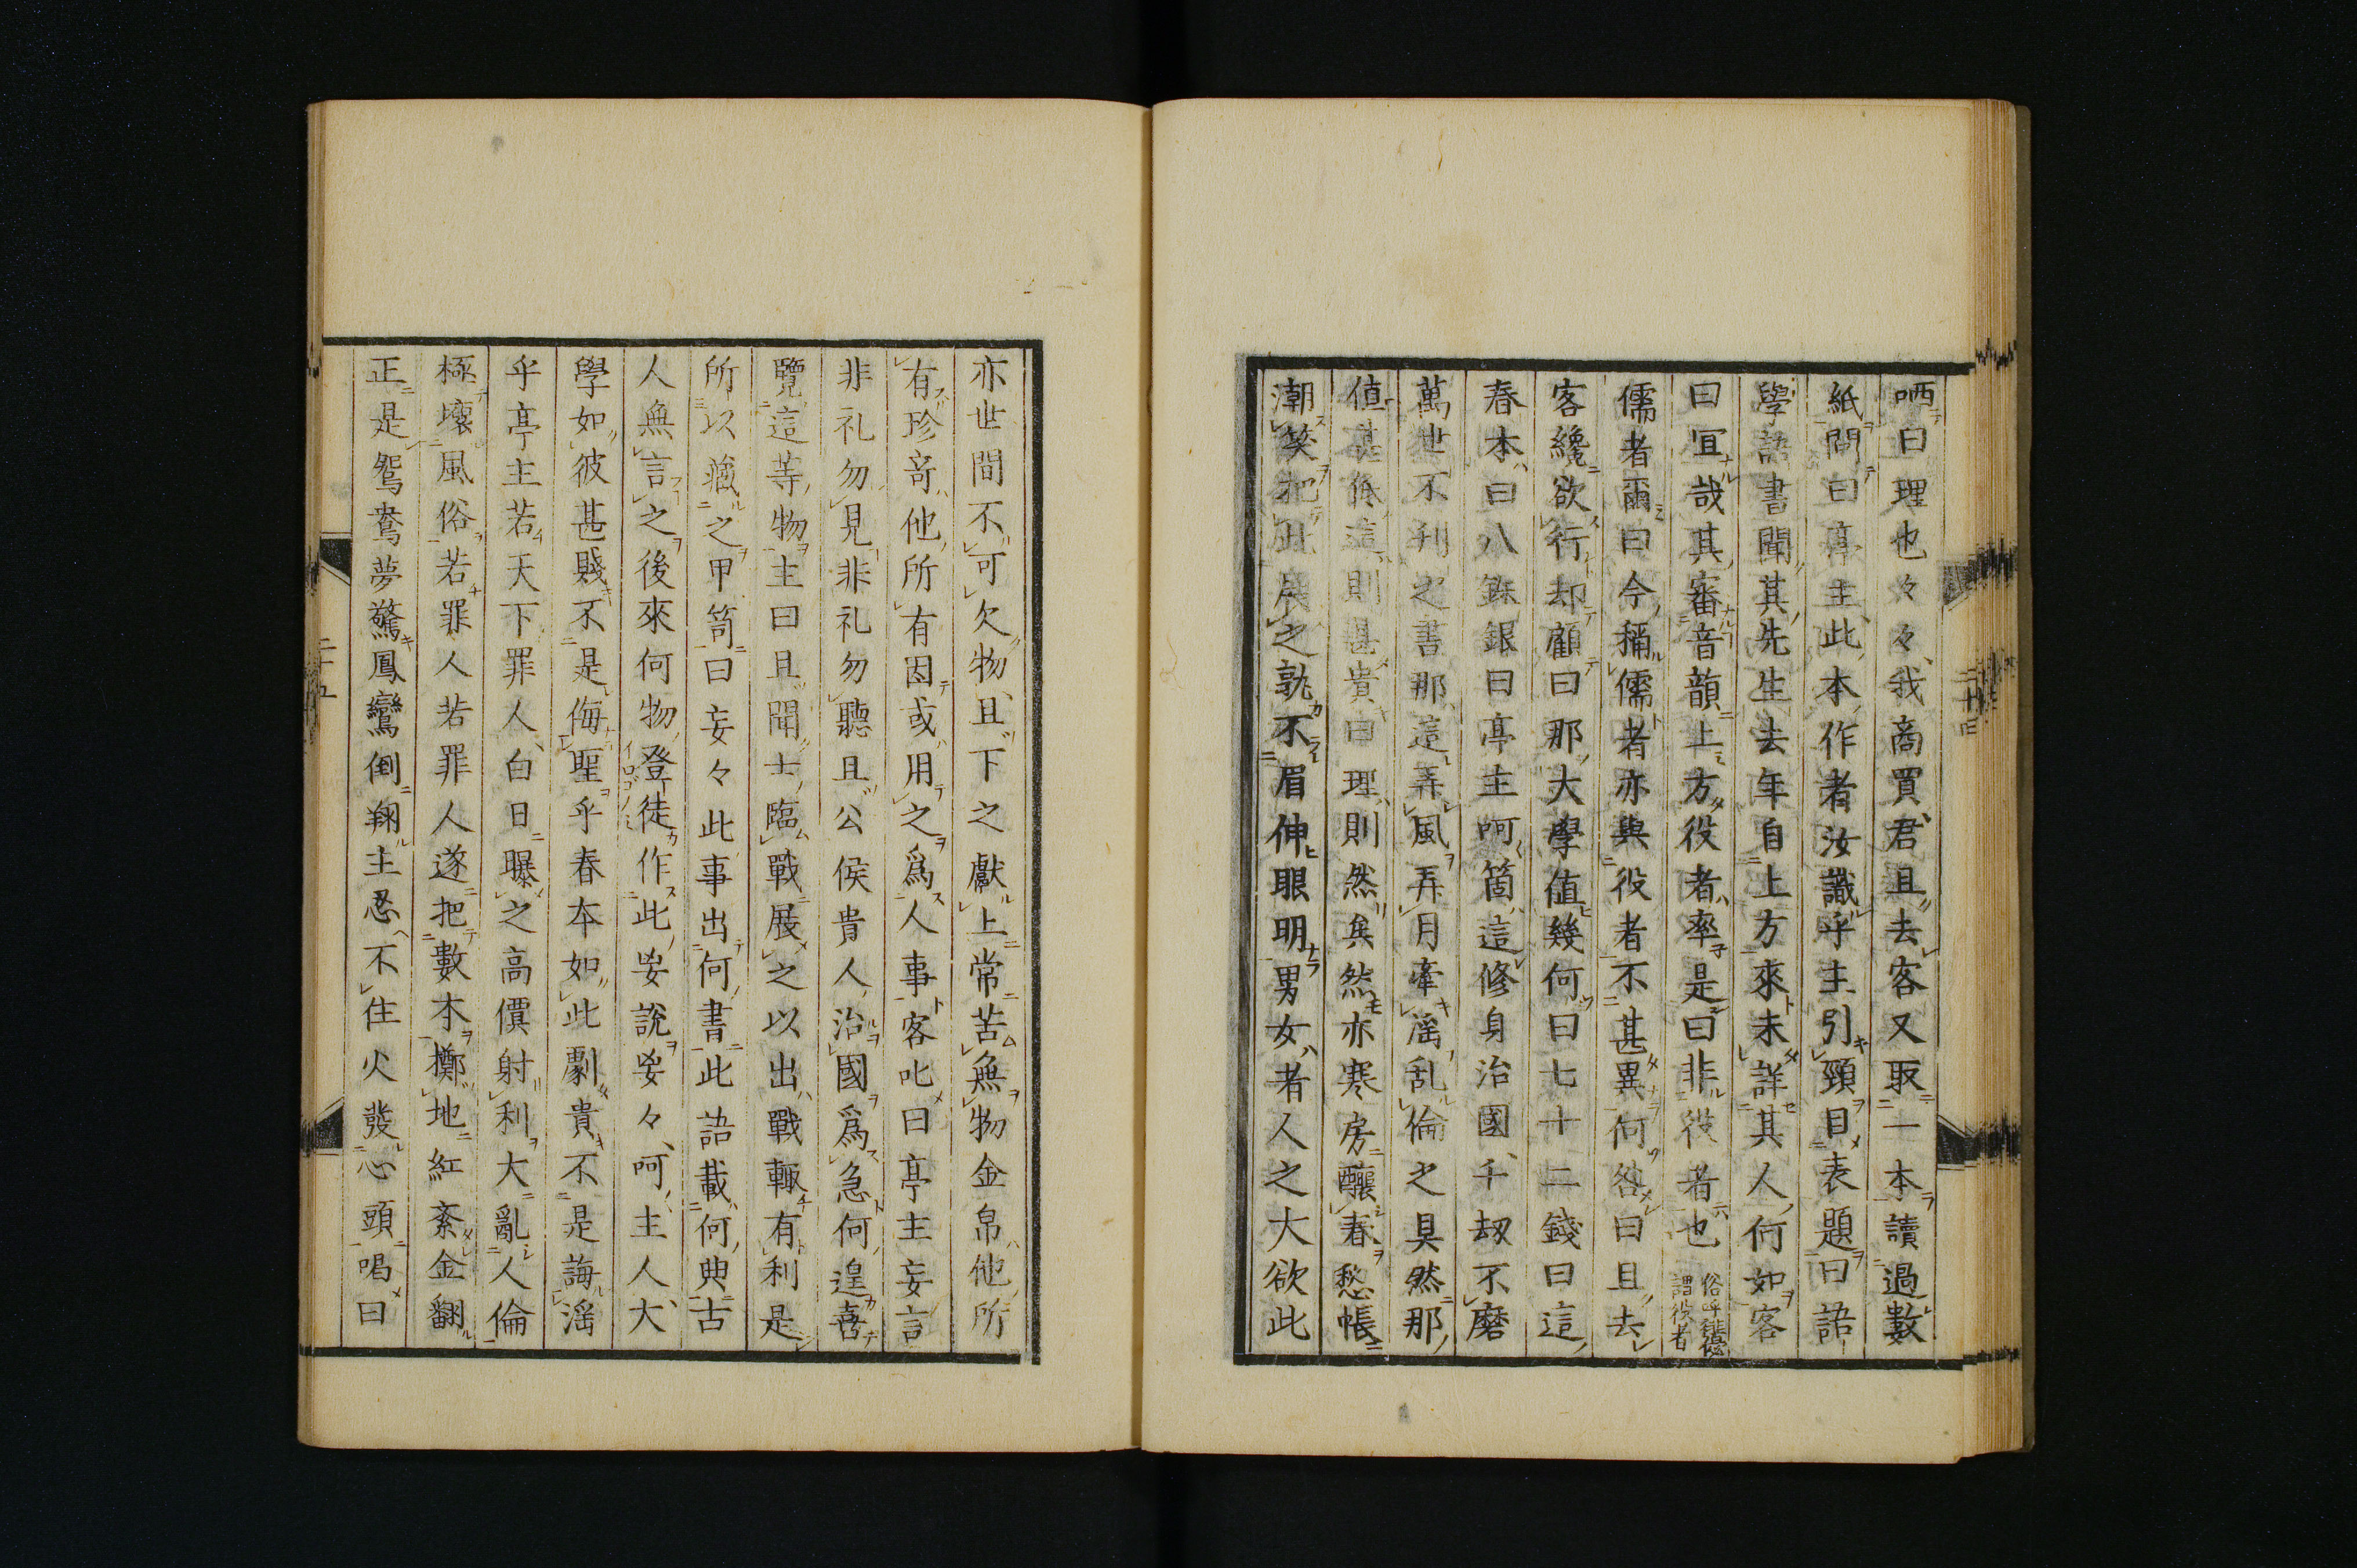 哂曰理也々々我商買君且去客又取一本讀過數
紙問曰亭主此本作者汝識乎主引頸目表題曰語
學語書聞其先生去年自上方來未詳其人何如客
曰宜哉其審音韻上方役者率是曰非役者也俗呼俳優謂役者
儒者爾曰今稱儒者亦與役者不甚異何咎曰且去
客纔欲行却顧曰那大學値幾何曰七十二錢曰這
春本曰八銖銀曰亭主呵箇這修身治國千劫不磨
萬世不刊之書那這弄風弄月牽滛乱倫之具然那
値甚低這則甚貴曰理則然矣然亦寒房釀春愁帳
潮笑把此展之孰不眉伸眼明男女者人之大欲此
二十四
亦世間不可欠物且下之獻上常苦無物金帛他所
有珍竒他所有因或用之爲人事客叱曰亭主妄言
非礼勿見非礼勿聽且公侯貴人治國爲急何遑喜
覽這等物主曰且聞士臨戰展之以出戰輙有利是
所以藏之甲笥曰妄々此事出何書此語載何典古
人無言之後來何物登徒作此妄說妄々呵主人大
學如彼甚賤不是侮聖乎春本如此劇貴不是誨滛
乎亭主若天下罪人白日曝之高價射利大亂人倫
極壞風俗若罪人若罪人遂把數本擲地紅紊金翻
正是鴛鴦夢驚鳳鸞倒翔主忍不住火發心頭喝曰
二十五